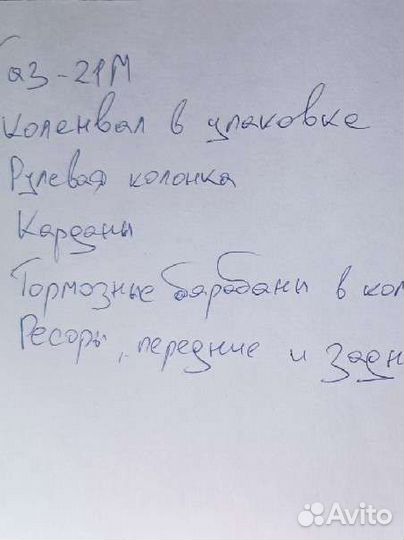 Газ-21М
Коленвал в упаковке
Рулевая колонка
Карданы
Тормозные барабаны в ком
Ресоры, передние и задн
Avito